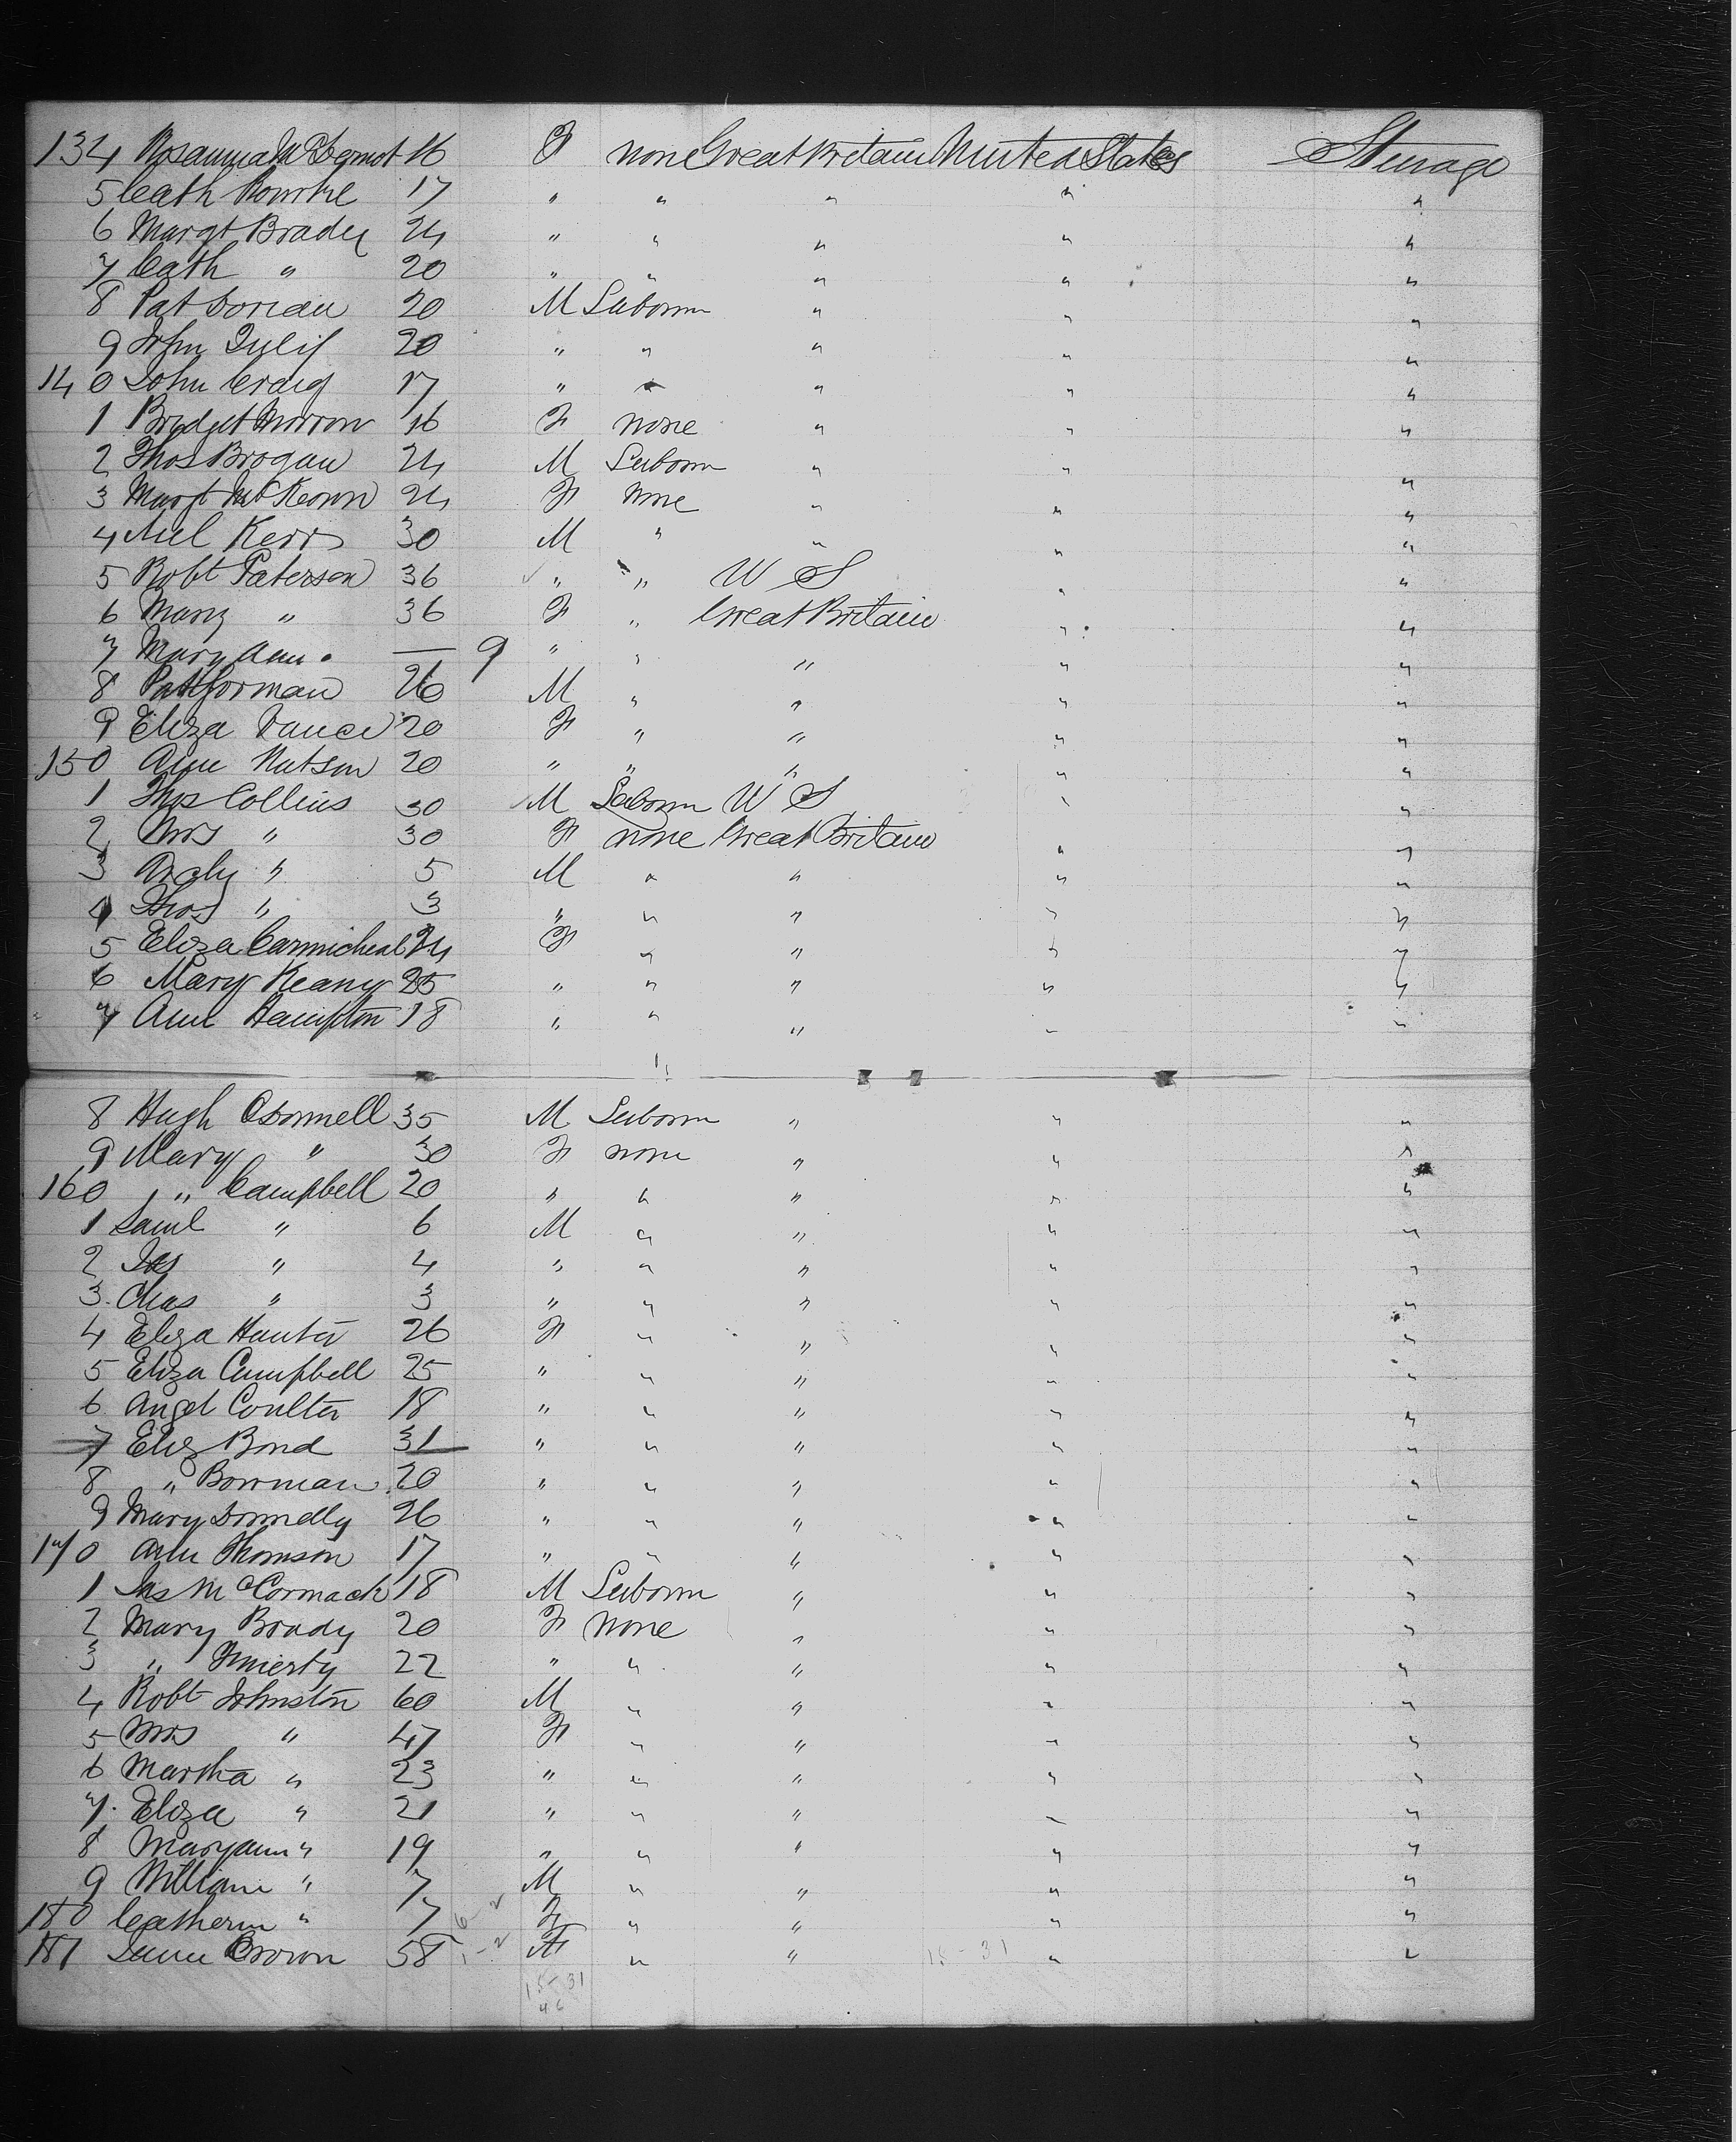 134 Rosanna McDermot 16 F none Great Britain United States Steerage
5 Cath Rourke 17 " " " " "
6 Margt Brady 24 " " " " "
7 Cath " 20 " " " " "
8 Pat Dorian 20 M Laborer " " "
9 John 20 " " " " "
140 John Craig 17 " " " " "
1 Bridget Morrow 16 F none " " "
2 Thos Brogan 24 M Laborer " " "
3 Margt McKeown 24 F none " " "
4 Neil Kerr 30 M " " " "
5 Robt Paterson 36 " " U S " "
6 Mary " 36 F " Great Britain " "
7 Mary Ann " — 9 " " " " "
8 Pat Gorman 26 M " " " "
9 Eliza Vance 20 F " " " "
150 Ann Watson 20 " " " " "
1 Thos Collins 30 M Laborer U S " "
2 Mrs " 30 F none Great Britain " "
3 Archy " 5 M " " " "
4 Thos " 3 " " " " "
5 Eliza Carmicheal 24 F " " " "
6 Mary Keany 25 " " " " "
7 Ann Hampton 18 " " " " "
8 Hugh ODonnell 35 M Laborer " " "
9 Mary " 30 F none " " "
160 " Campbell 20 " " " " "
1 Saml " 6 M " " " "
2 Jas " 4 " " " " "
3 Chas " 3 " " " " "
4 Eliza Hunter 26 F " " " "
5 Eliza Campbell 25 " " " " "
6 Angel Coulter 18 " " " " "
7 Eliz Bond 31 " " " " "
8 " Bowman 20 " " " " "
9 Mary Donnelly 26 " " " " "
170 Ann Thomson 17 " " " " "
1 Jas McCormack 18 M Laborer " " "
2 Mary Brady 20 F none " " "
3 " 22 " " " " "
4 Robt Johnston 60 M " " " "
5 Mrs " 47 F " " " "
6 Martha " 23 " " " " "
7 Eliza " 21 " " " " "
8 Maryann " 19 " " " " "
9 William " 7 M " " " "
180 Catherin " 7 F " " " "
181 Brown 58 F " " 15-31 " "
15-31
46